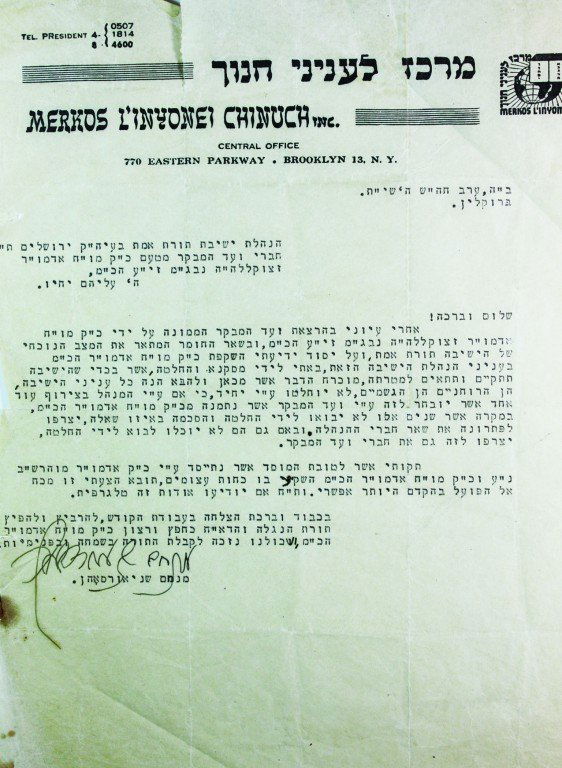 TEL. PRESIDENT 4- 0507
1814
8 - 4600
מרכז לעניני חנוך
MERKOS L'INYONEI CHINUCH INC.
MERKOS L'INYON
CENTRAL OFFICE
770 EASTERN PARKWAY • BROOKLYN 13, N. Y.
ב"ה, ערב חה"ש ה'שי"ת.
ברוקלין.
הנהלת ישיבת תורת אמת בעיה"ק ירושלים ת"
חברי ועד המבקר מטעם כ"ק מו"ח אדמו"ר
זצוקללה"ה נבג"מ זי"ע הכ"מ,
ה' עליהם יחיו.
שלום וברכה!
אחרי עיוני בהרצאת ועד המבקר הממונה על ידי כ"ק מו"ח
אדמו"ר זצוקללה"ה נבג"מ זי"ע הכ"מ, ובשאר החומר המתאר את המצב הנוכחי
של הישיבה תורת אמת, ועל יסוד ידיעתי השקפת כ"ק מו"ח אדמו"ר הכ"מ
בעניני הנהלת הישיבה הזאת, באתי לידי מסקנא והחלטה, אשר בכדי שהישיבה
תתקיים ותתאים למטרתה, מוכרח הדבר אשר מכאן ולהבא הנה כל עניני הישיבה,
הן הרוחניים הן הגשמיים, לא יוחלטו ע"י יחיד, כי אם ע"י המנהל בצירוף עוד
אחד אשר יובחר לזה ע"י ועד המבקר אשר נתמנה מכ"ק מו"ח אדמו"ר הכ"מ.
במקרה אשר שנים אלו לא יבואו לידי החלטה והסכמה באיזו שאלה, יצרפו
לפתרונה את שאר חברי ההנהלה, ובאם גם הם לא יוכלו לבוא לידי החלטה,
יצרפו לזה גם את חברי ועד המבקר.
תקותי אשר לטובת המוסד אשר נתייסד ע"י כ"ק אדמו"ר מוהרש"ב
נ"ע וכ"ק מו"ח אדמו"ר הכ"מ השקיע בו כחות עצומים, תובא הצעתי זו מכח
אל הפועל בהקדם היותר אפשרי. ות"ח אם יודיעו אודות זה טלגרפית.
בכבוד וברכת הצלחה בעבודת הקודש, להרביץ ולהפיץ
תורת הנגלה והדא"ח כחפץ ורצון כ"ק מו"ח אדמו"ר
הכ"מ, שכולנו נזכה לקבלת התורה בשמחה ובפנימיות
מנחם שניאורסאהן.